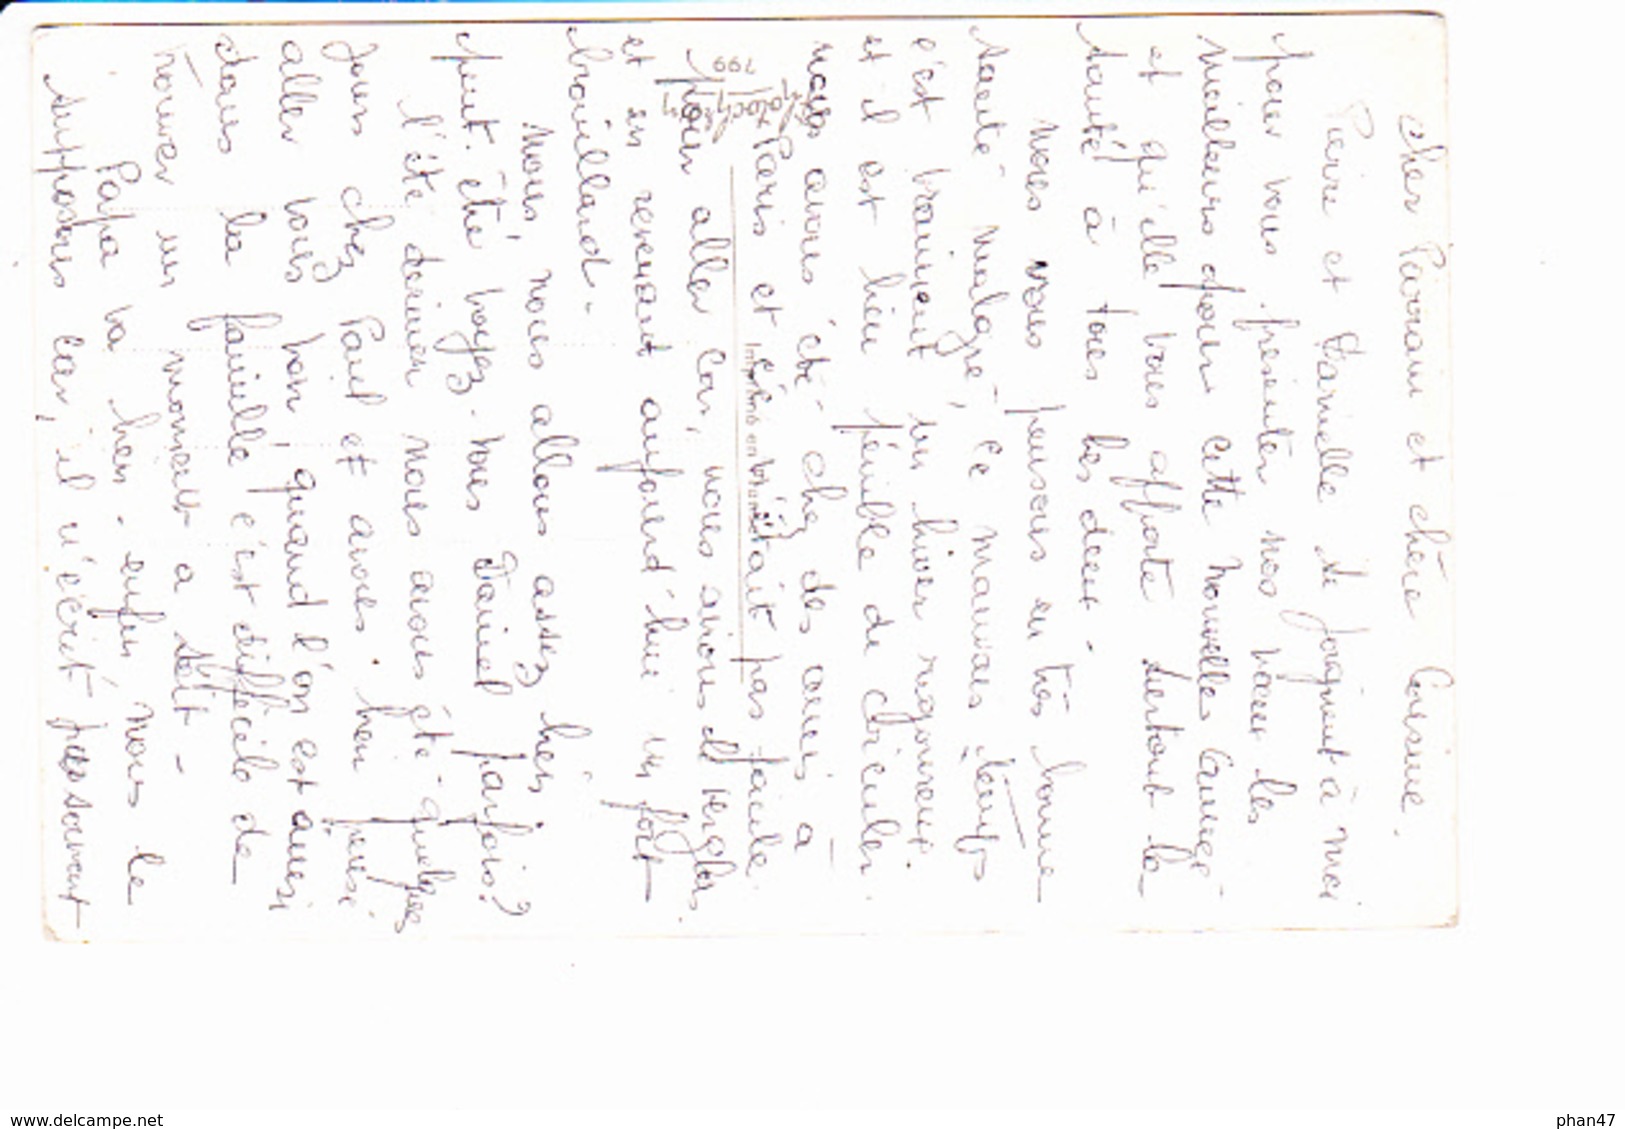 Cher Parrain et chère Cousine.
Pierre et Danielle se joignent à moi
pour vous présenter nos vœux les
meilleurs pour cette Nouvelle Année
et qu'elle vous apporte surtout la
santé à tous les deux -
Nous nous pensons en très bonne
santé malgré ce mauvais temps
c'est vraiment un hiver rigoureux
et il est bien pénible de circuler.
nous avons été chez des amis à
Paris et ce n'était pas facile
pour aller car, nous avions du verglas
et en revenant aujourd'hui un fort
brouillard -
Nous, nous allons assez bien
peut-être voyez-vous Daniel parfois ?
l'été dernier nous avons été quelques
jours chez Paul et avons bien pensé
aller vous voir, quand l'on est aussi
dans la famille c'est difficile de
trouver un moment
Papa va bien - enfin nous le
supposons car, il n'écrit pas souvent
Photochrom
799
Imprimé en
delcampe.net
phan47